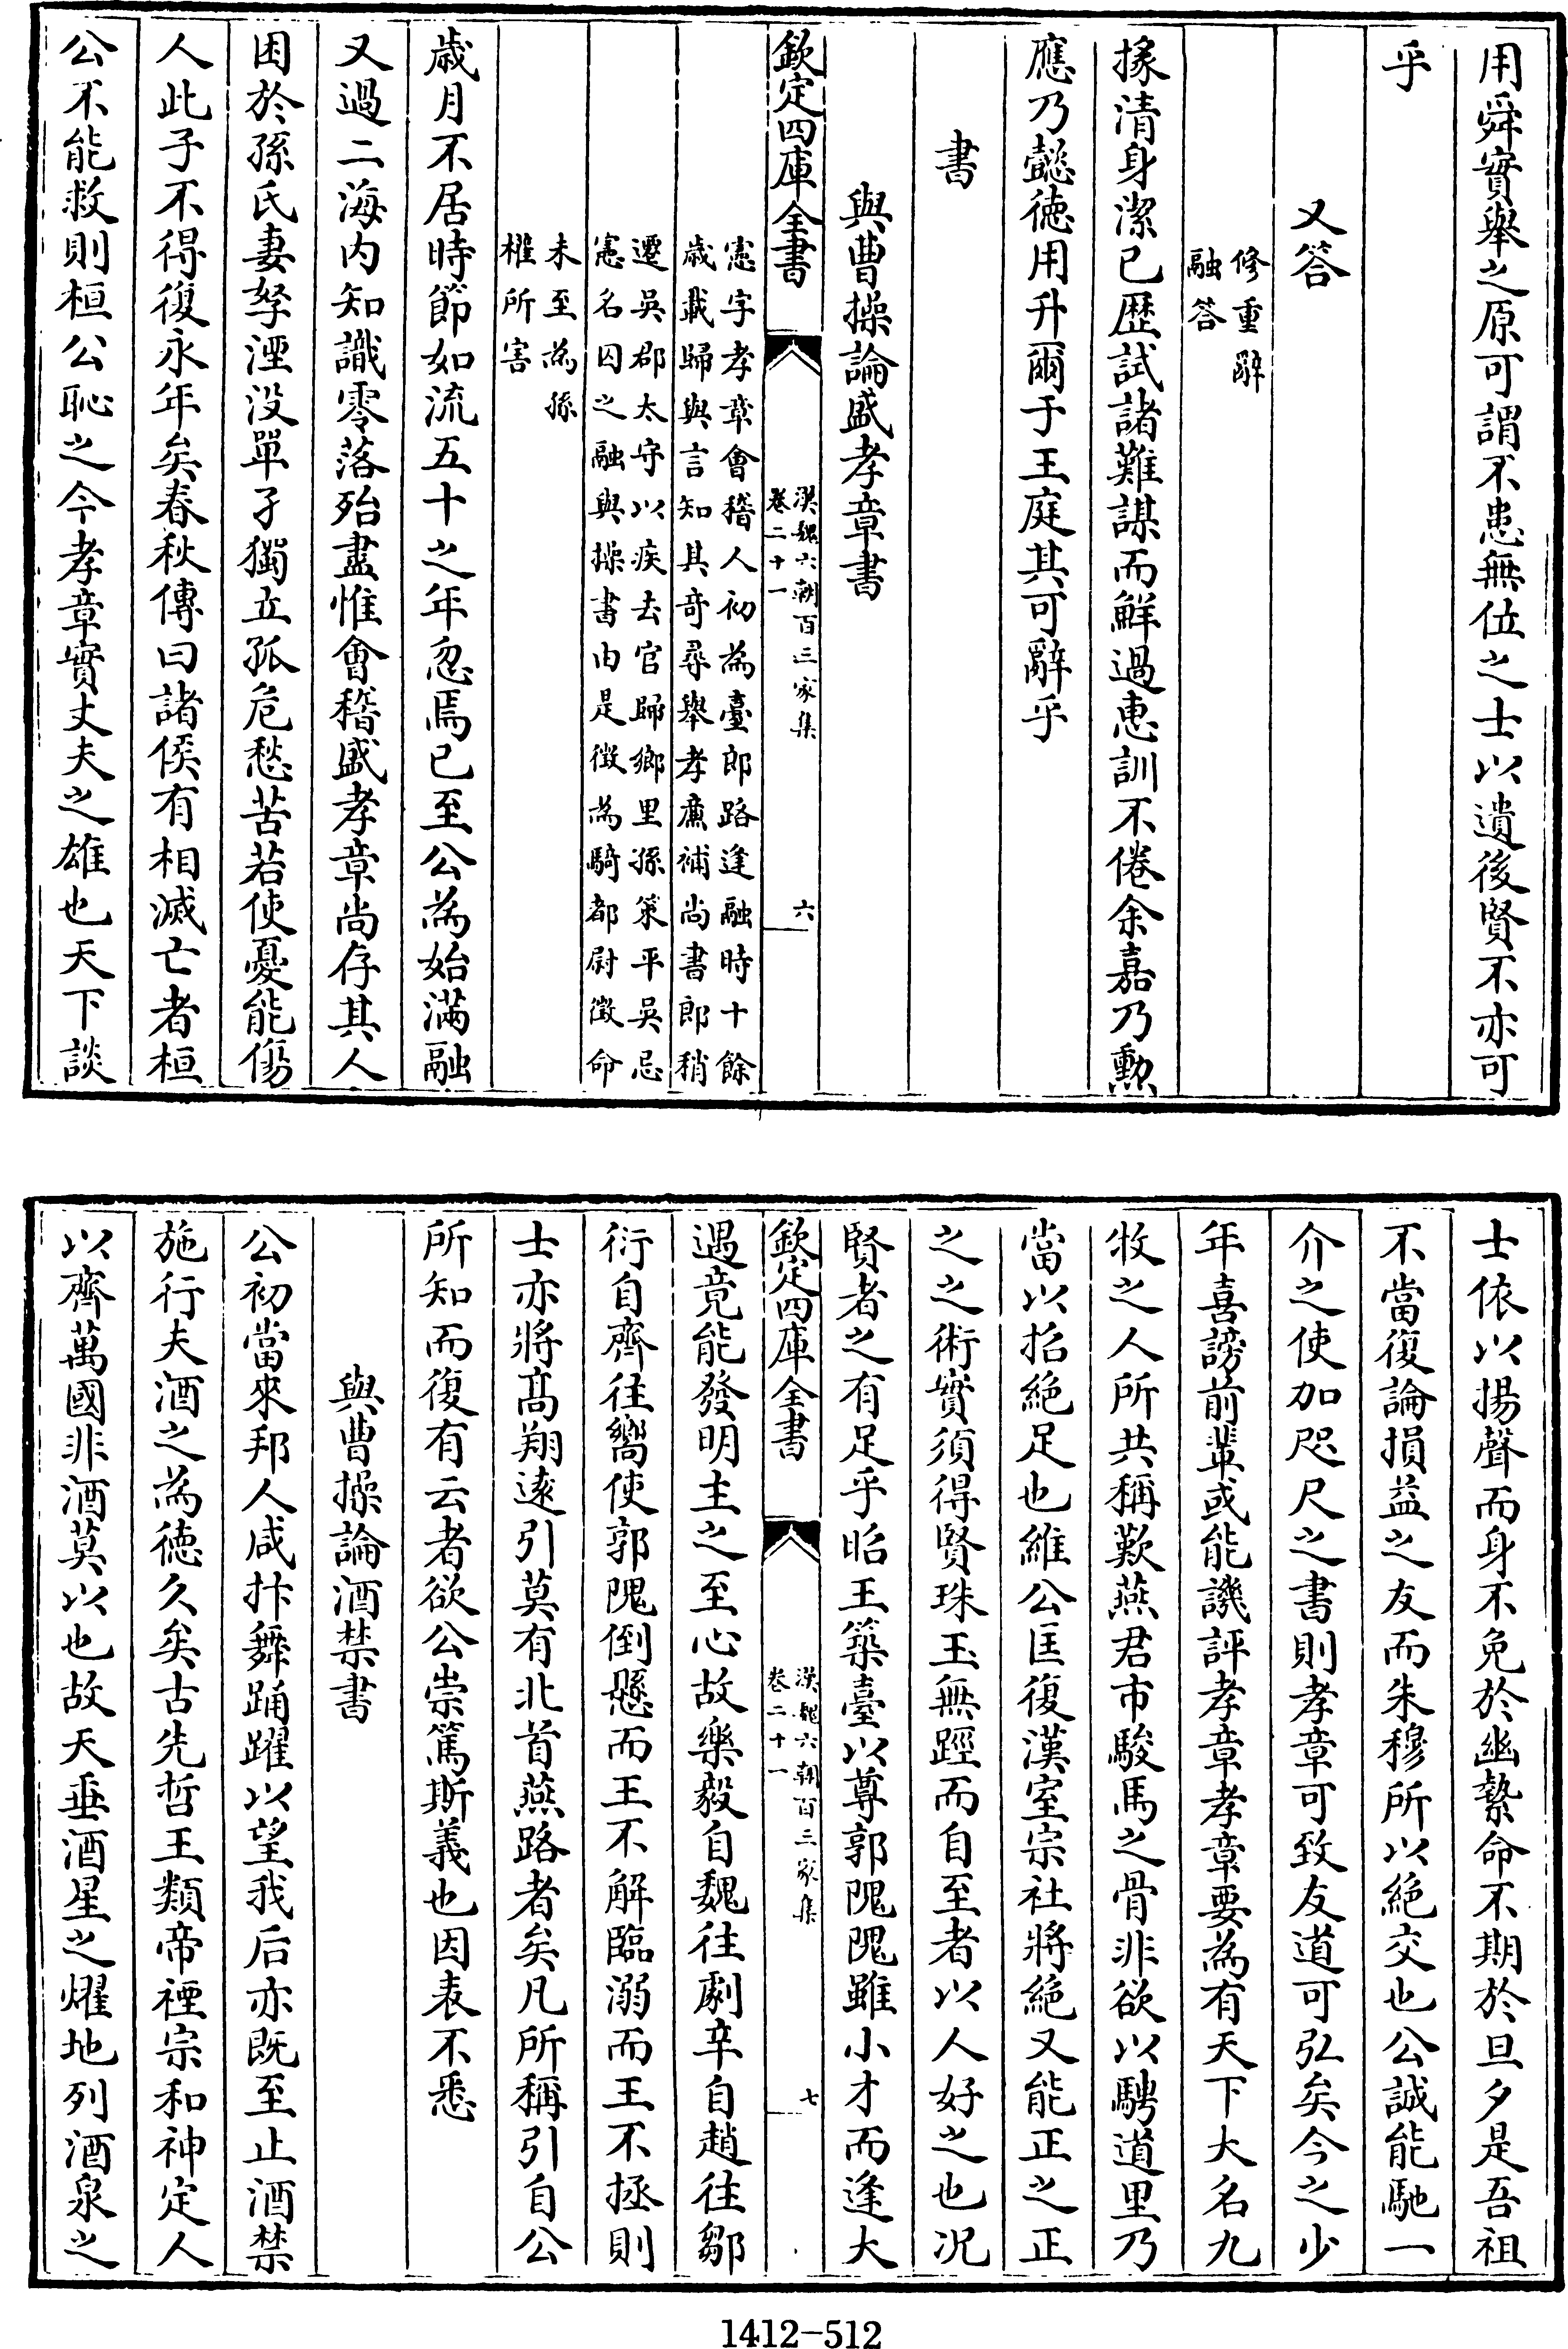 用舜實舉之原可謂不患無位之士以遺後賢不亦可
乎
又答
修重辭
融答
掾清身潔已歷試諸難謀而鮮過惠訓不倦余嘉乃勲
應乃懿徳用升爾于王庭其可辭乎
書
與曹操論盛孝章書
欽定四庫全書
漢魏六朝百三家集
卷二十一
六
憲字孝章會稽人初為臺郎路逢融時十餘
歳載歸與言知其奇尋舉孝亷補尚書郎稍
遷吳郡太守以疾去官歸鄉里孫策平吳忌
憲名囚之融與操書由是徵為騎都尉徵命
未至為孫
權所害
歳月不居時節如流五十之年忽焉已至公為始滿融
又過二海内知識零落殆盡惟會稽盛孝章尚存其人
困於孫氏妻孥湮没單孑獨立孤危愁苦若使憂能傷
人此子不得復永年矣春秋傳曰諸侯有相滅亡者桓
公不能救則桓公恥之今孝章實丈夫之雄也天下談
士依以揚聲而身不免於幽縶命不期於旦夕是吾祖
不當復論損益之友而朱穆所以絶交也公誠能馳一
介之使加咫尺之書則孝章可致友道可弘矣今之少
年喜謗前輩或能譏評孝章孝章要為有天下大名九
牧之人所共稱歎燕君市駿馬之骨非欲以騁道里乃
當以招絶足也維公匡復漢室宗社將絶又能正之正
之之術實須得賢珠玉無踁而自至者以人好之也况
賢者之有足乎昭王築臺以尊郭隗隗雖小才而逢大
欽定四庫全書
漢魏六朝百三家集
卷二十一
七
遇竟能發明主之至心故樂毅自魏往劇辛自趙往鄒
衍自齊往嚮使郭隗倒懸而王不解臨溺而王不拯則
士亦將髙翔遠引莫有北首燕路者矣凡所稱引自公
所知而復有云者欲公崇篤斯義也因表不悉
與曹操論酒禁書
公初當來邦人咸抃舞踊躍以望我后亦既至止酒禁
施行夫酒之為徳久矣古先哲王類帝禋宗和神定人
以齊萬國非酒莫以也故天垂酒星之燿地列酒泉之
1412-512